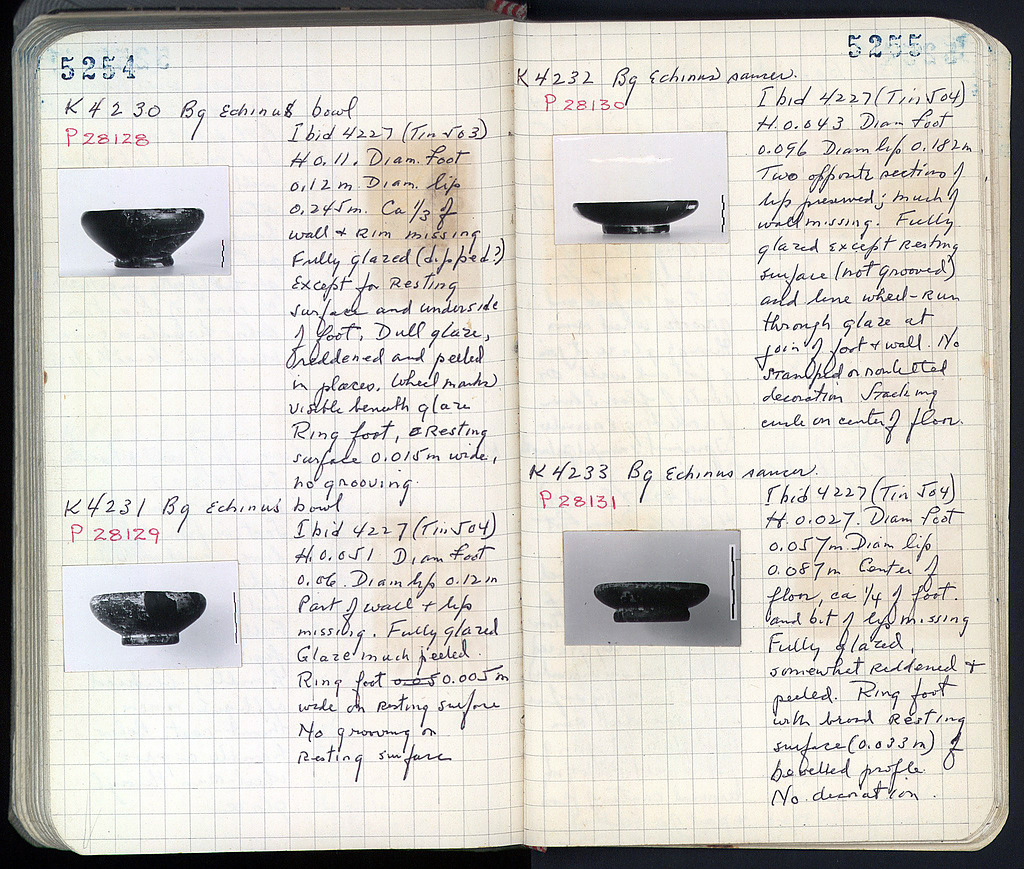 5254
K 4230 Bg Echinus bowl
P 28128
Ibid 4227 (Tin √03)
H 0.11. Diam. foot
0.12 m Diam. lip
0.245m. Ca 1/3 of
wall + Rim missing
Fully glazed (dipped?)
Except for Resting
surface and underside
of foot. Dull glaze,
reddened and peeled
in places. Wheel marks
visible beneath glaze
Ring foot, Resting
surface 0.015m wide,
no grooving.
K 4231 Bg Echinus bowl
P 28129
Ibid 4227 (Tin √04)
H. 0.051 Diam foot
0.06. Diam lip 0.12m
Part of wall + lip
missing. Fully glazed
Glaze much peeled.
Ring foot 0.005m
wide on Resting surface
No grooving on
Resting surface
5255
K 4232 Bg Echinus saucer.
P 28130
Ibid 4227 (Tin √04)
H. 0.043 Diam foot
0.096 Diam lip 0.182m.
Two opposite sections of
lip preserved; much of
wall missing. Fully
glazed except Resting
surface (not grooved)
and line wheel-Run
through glaze at
join of foot + wall. No
stamped or rouletted
decoration Stacking
circle on center of floor.
K 4233 Bg Echinus saucer.
P 28131
Ibid 4227 (Tin √04)
H. 0.027. Diam foot
0.057m. Diam lip
0.087m Center of
floor, ca 1/4 of foot.
and bit of lip missing
Fully glazed,
somewhat Reddened +
peeled. Ring foot
with broad Resting
surface (0.033m) of
bevelled profile.
No decoration.